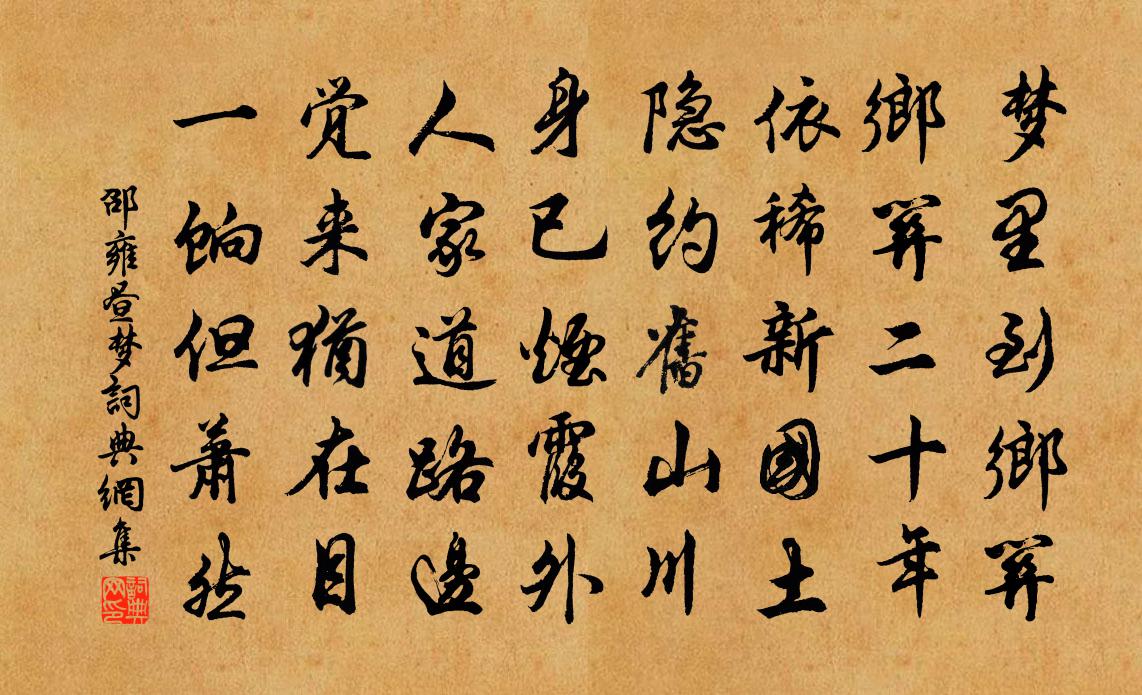 梦里到鄉關
鄉關二十年
依稀新國土
隐約舊山川
身已煙霞外
人家道路邊
觉来猶在目
一餉但蕭然
邵雍昼梦詞典網集
詞典网印